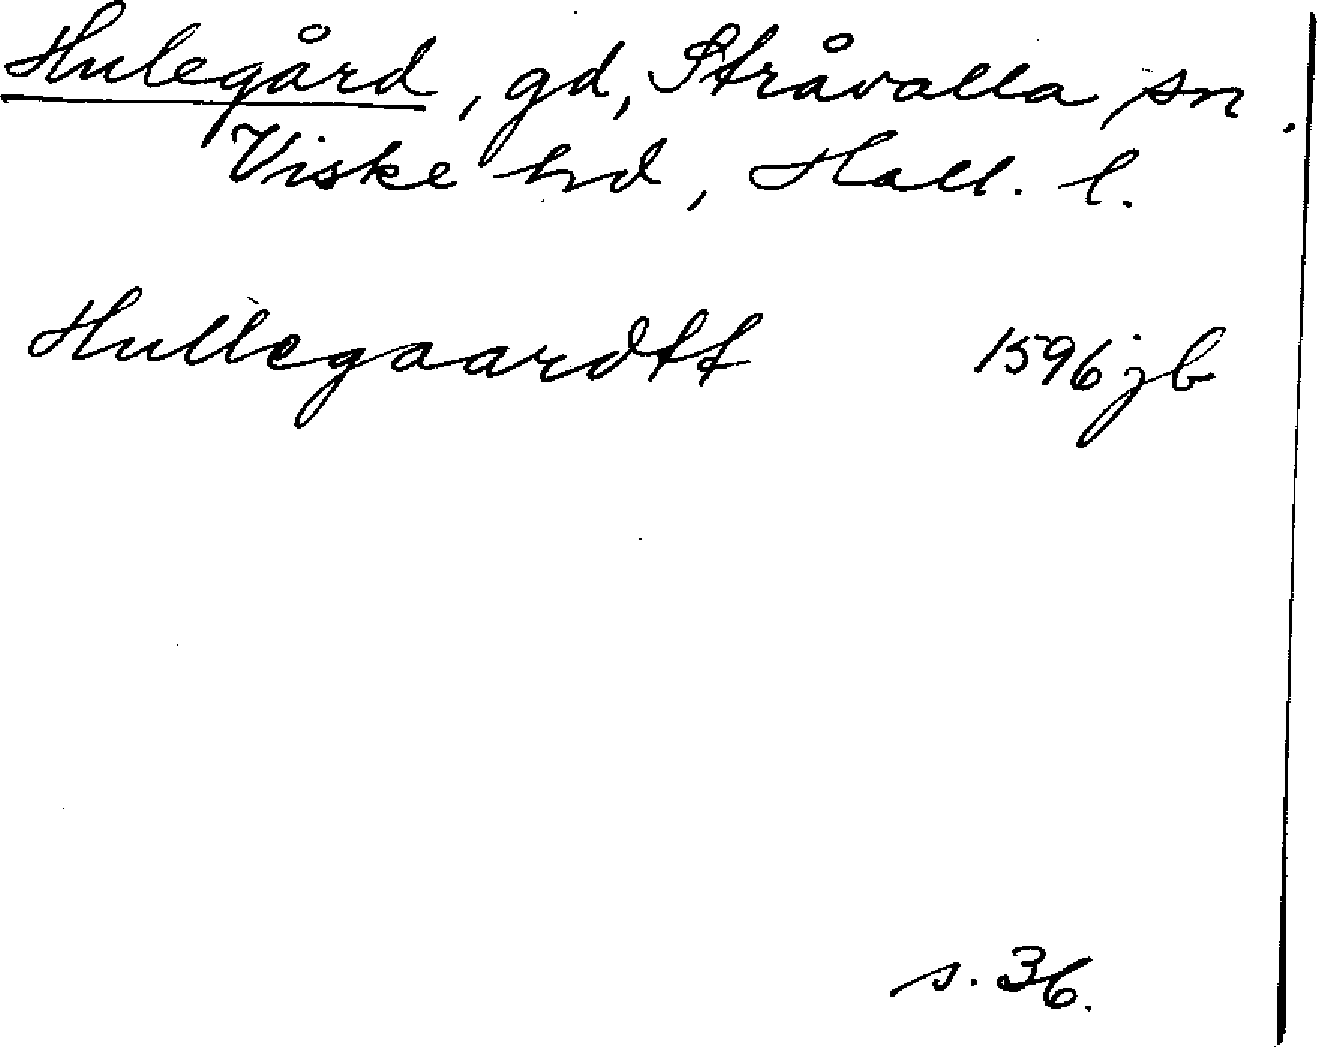 Hulegård, gd, Stråvalla sn,
Viske hd, Hall. l.
Hullegaardtt 1596 jb
s. 36.